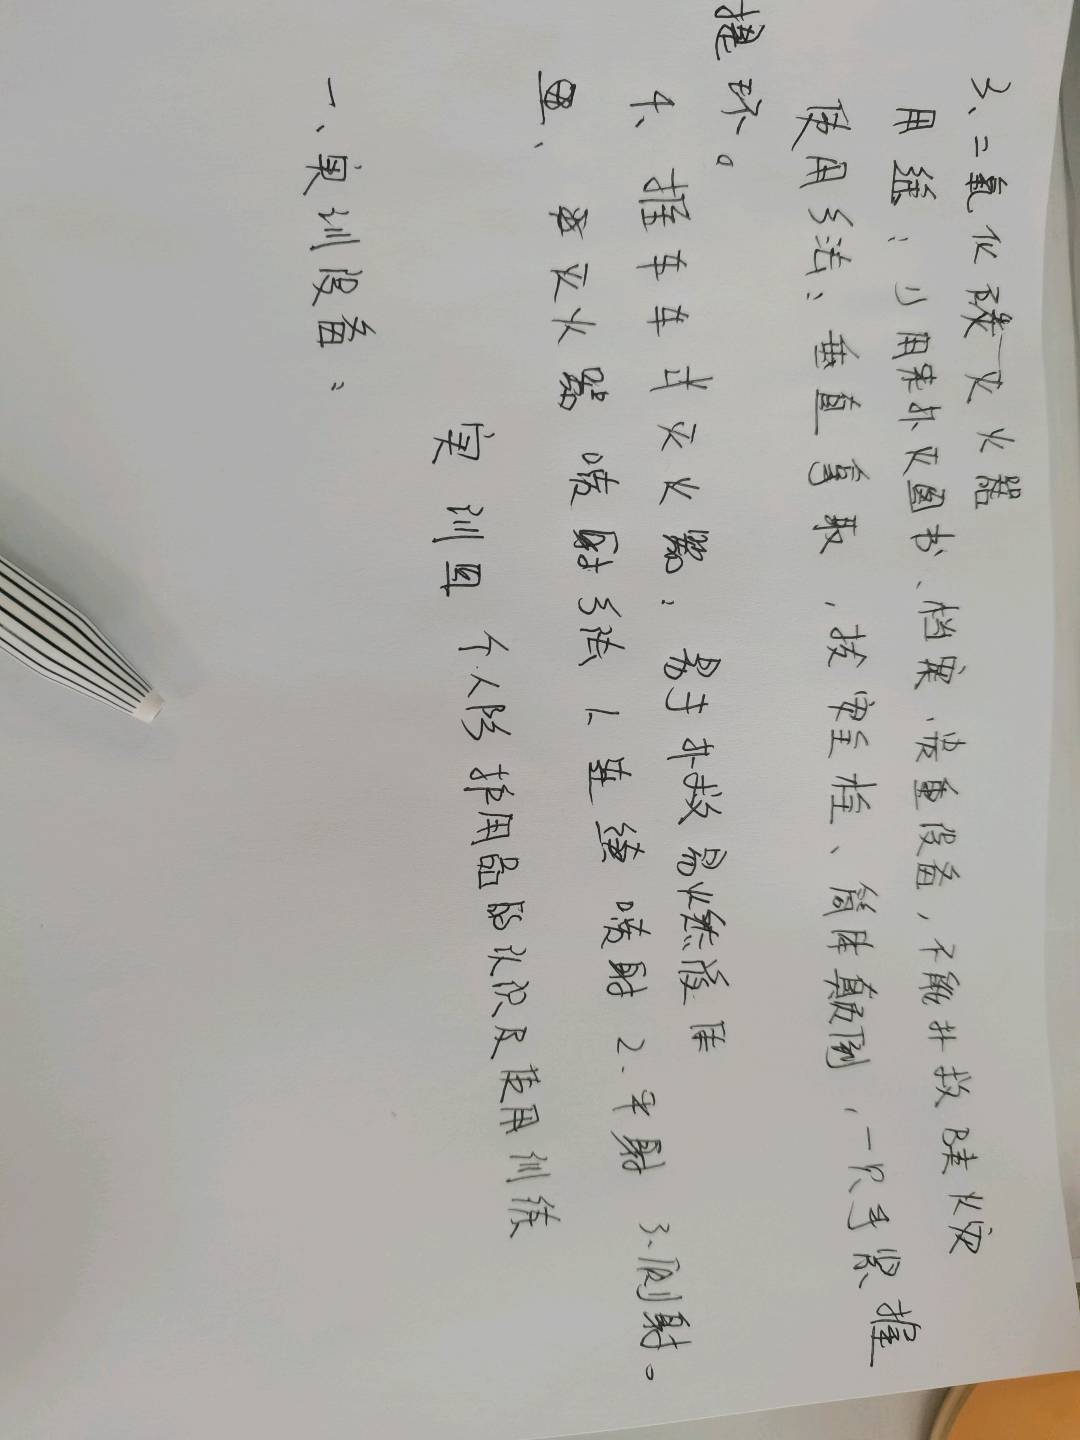 3、二氧化碳灭火器
用途：1)用来扑灭图书、档案、贵重设备，不能扑救B类火灾
使用方法：垂直拿取，拔安全栓、筒体颠倒，一只手紧握
提环。
4、推车车式灭火器：易于扑救易燃液体
灭火器喷射方法 1、连续喷射 2.平射 3.侧射。
实训四 个人防护用品的认识及使用训练
一、实训设备：